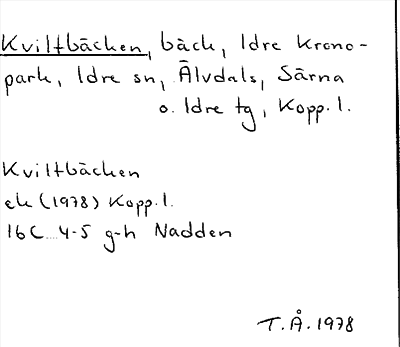 Kviltbäcken, bäck, Idre Krono-
park, Idre sn, Älvdals, Särna
o. Idre tg, Kopp. l.
Kviltbäcken
ek (1978) Kopp. l.
16C 4-5 g-h Nadden
T.Å. 1978